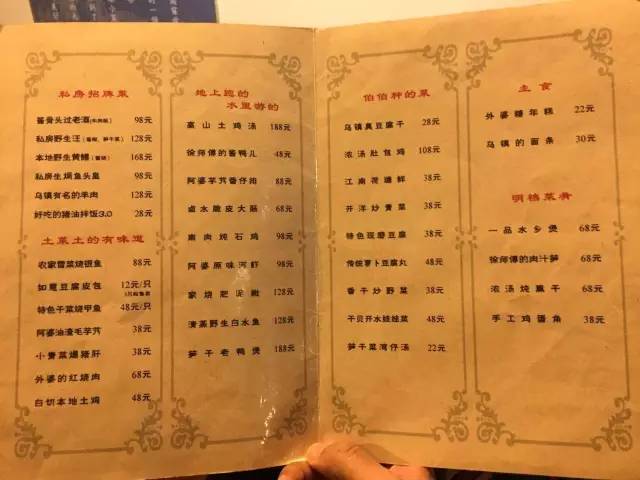 私房招牌菜
酱骨头过老酒 98元
私房野生汪 128元
本地野生黄鳝 168元
私房生焗鱼头皇 98元
乌镇有名的羊肉 128元
好吃的猪油拌饭3.0 28元
土菜土的有味道
农家雪菜烧银鱼 88元
如意豆腐皮包 12元/只
特色干菜烧甲鱼 48元/只
阿婆油渣毛芋艿 38元
小青菜爆猪肝 38元
外婆的红烧肉 68元
白切本地土鸡 48元
地上跑的
水里游的
高山土鸡汤 188元
徐师傅的酱鸭儿 48元
阿婆芋艿香仔排 68元
卤水脆皮大肠 68元
南肉炖石鸡 98元
阿婆原味河虾 98元
家烧肥泥鳅 128元
清蒸野生白水鱼 128元
笋干老鸭煲 188元
伯伯种的菜
乌镇臭豆腐干 28元
浓汤肚包鸡 108元
江南荷塘鲜 38元
开洋炒青菜 38元
特色现磨豆腐 38元
传统萝卜豆腐丸 48元
香干炒野菜 38元
干贝开水娃娃菜 48元
笋干菜湾仔汤 22元
主食
外婆糖年糕 22元
乌镇的面条 30元
明档菜肴
一品水乡煲 68元
徐师傅的肉汁笋 68元
浓汤炖熏干 68元
手工鸡蛋角 38元